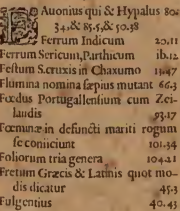 FAuonius qui & Hypalus 80.
34, & 85.5, & 50.38
Ferrum Indicum 20.11
Ferrum Sericum, Parthicum ib.12
Festum S. crucis in Chaxumo 13.47
Flumina nomina sæpius mutant 66.3
Fœdus Portugallensium cum Zei-
laudis 93.17
Fœminæ in defuncti mariti rogum
se coniiciunt 101.34
Foliorum tria genera 104.21
Fretum Græcis & Latinis quot mo-
dis dicatur 45.3
Fulgentius 40.43